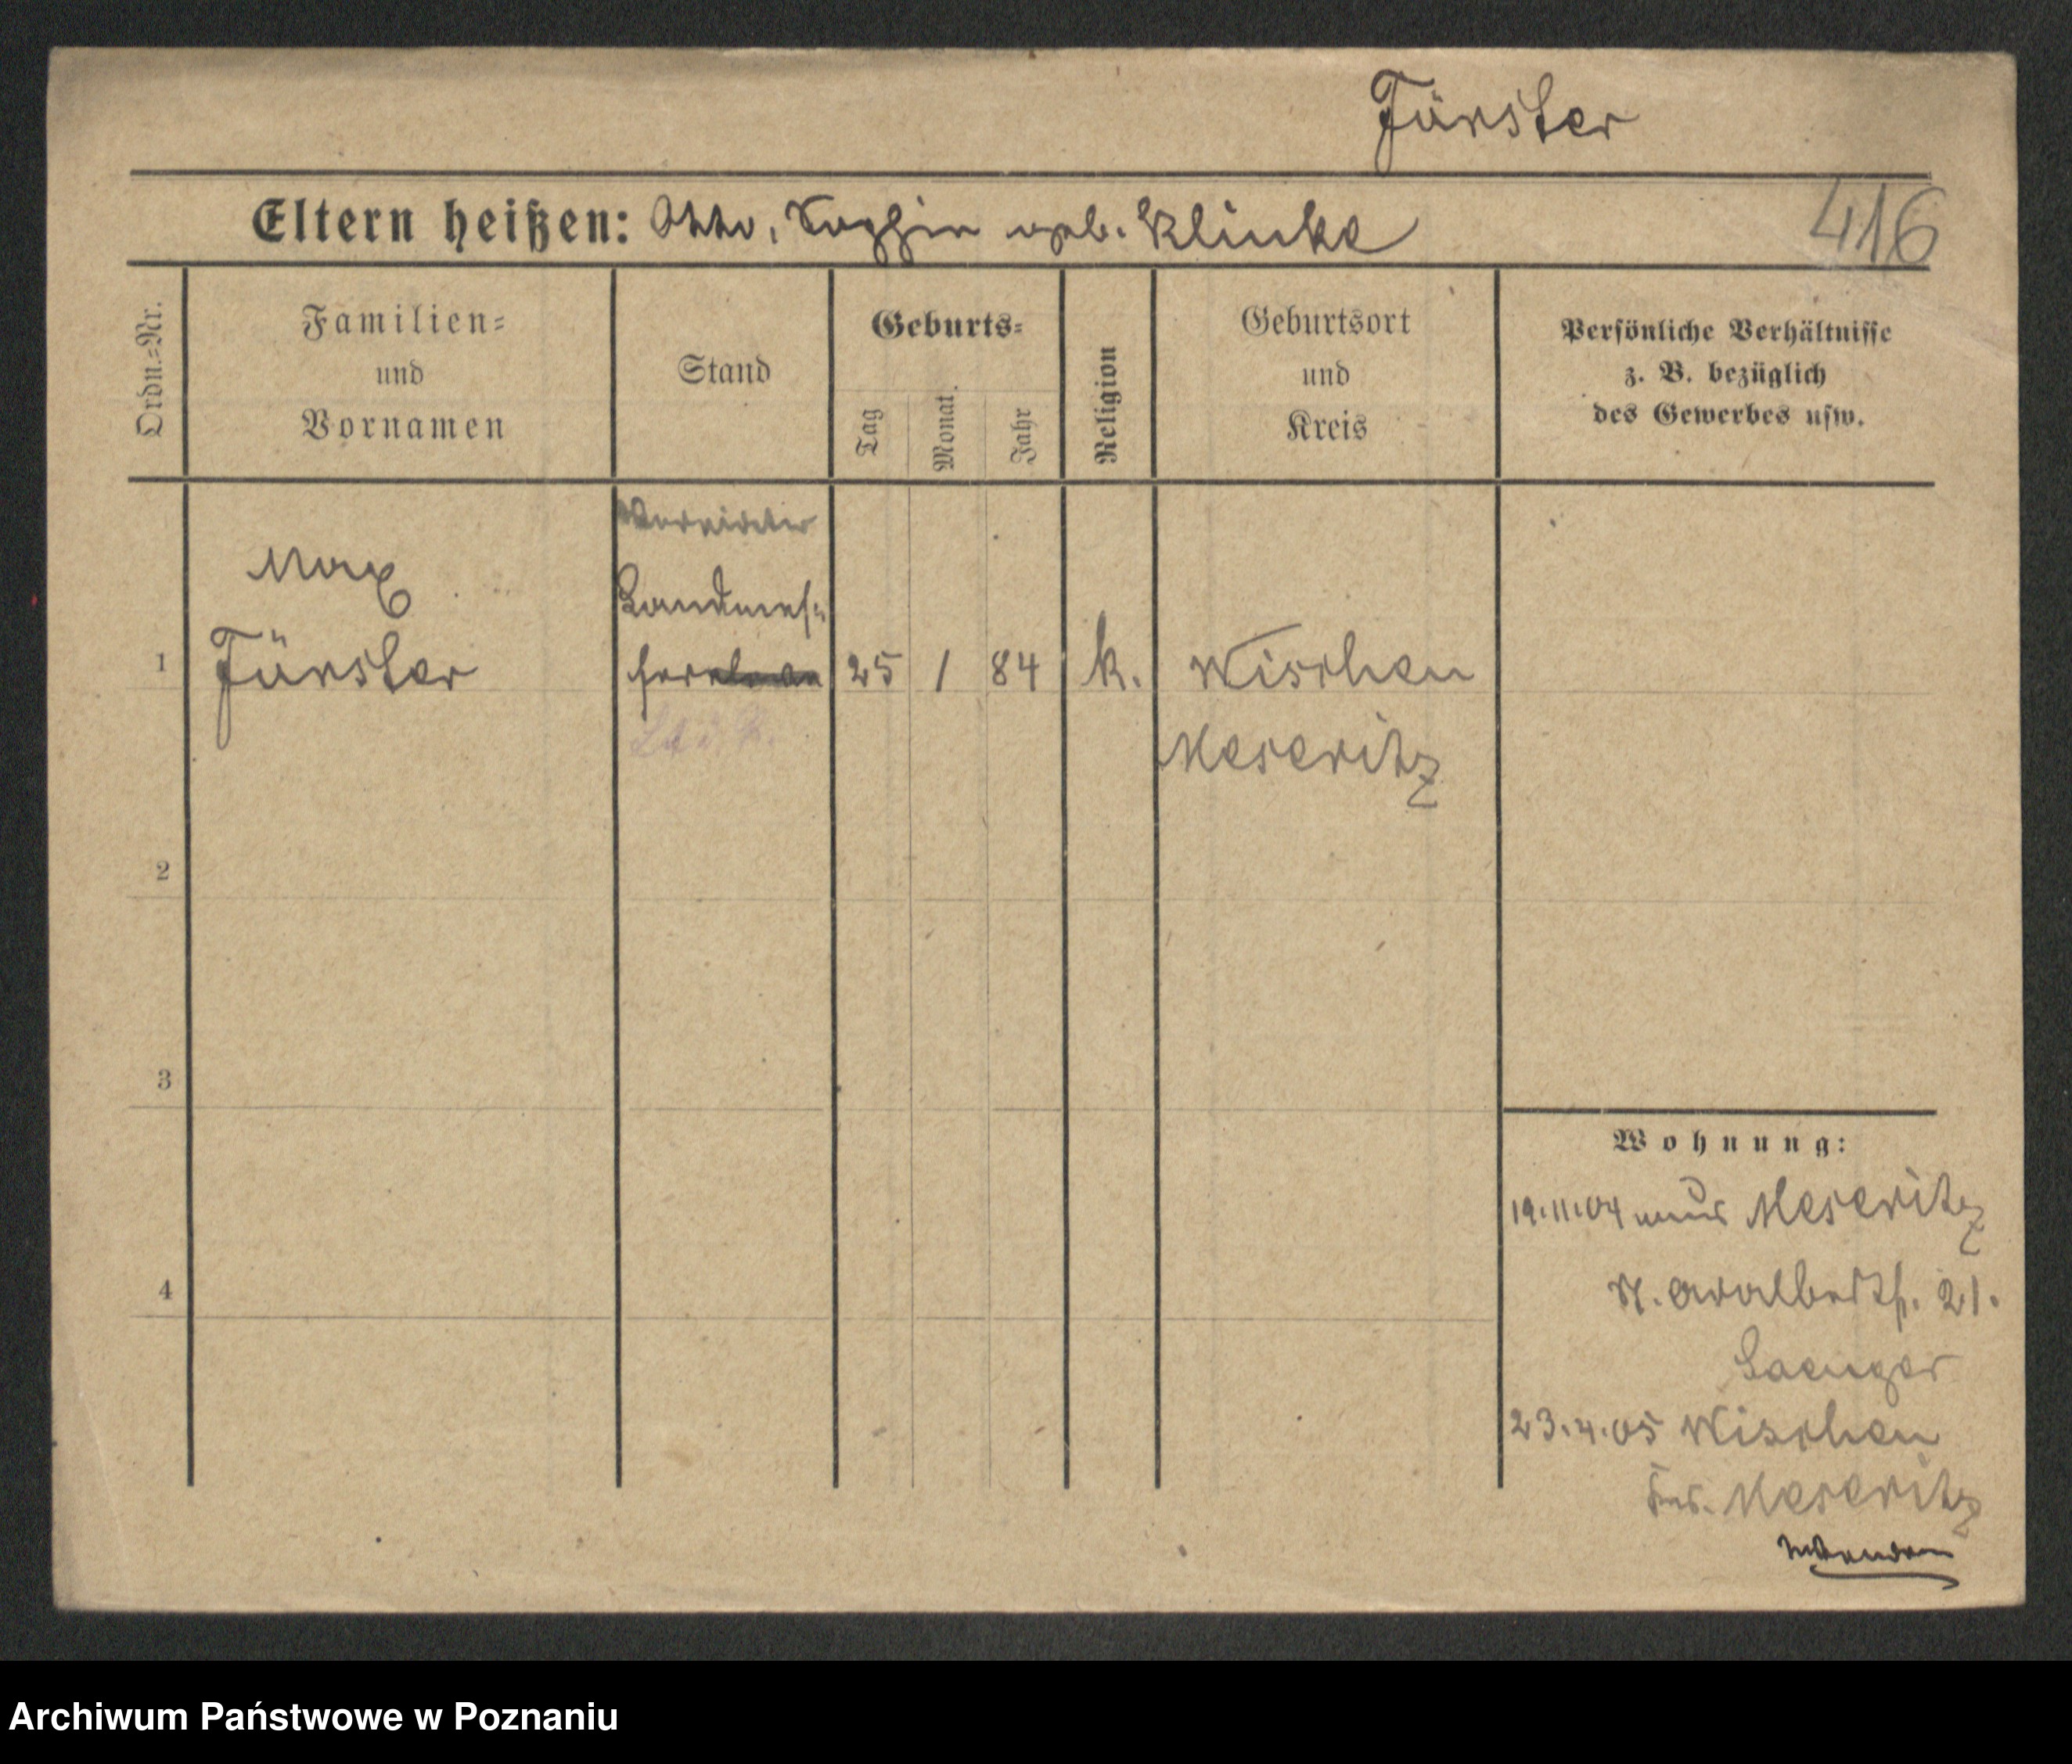 Fürster
416
Eltern heißen: Otto, Sophie geb. Klinke
Ordn.=Nr.
Familien=
und
Vornamen
Stand
Geburts=
Tag
Monat.
Jahr
Religion
Geburtsort
und
Kreis
Persönliche Verhältnisse
z. B. bezüglich
des Gewerbes usw.
Vereideter
Max
Landmes=
1 Fürster ser 25 1 84 k. Wischen
Meseritz
2
3
4
Wohnung:
19.11.04 aus Meseritz
N. Adalbertstr. 21.
Saenger
23.4.05 Wischen
Krs. Meseritz
Wenden
Archiwum Państwowe w Poznaniu